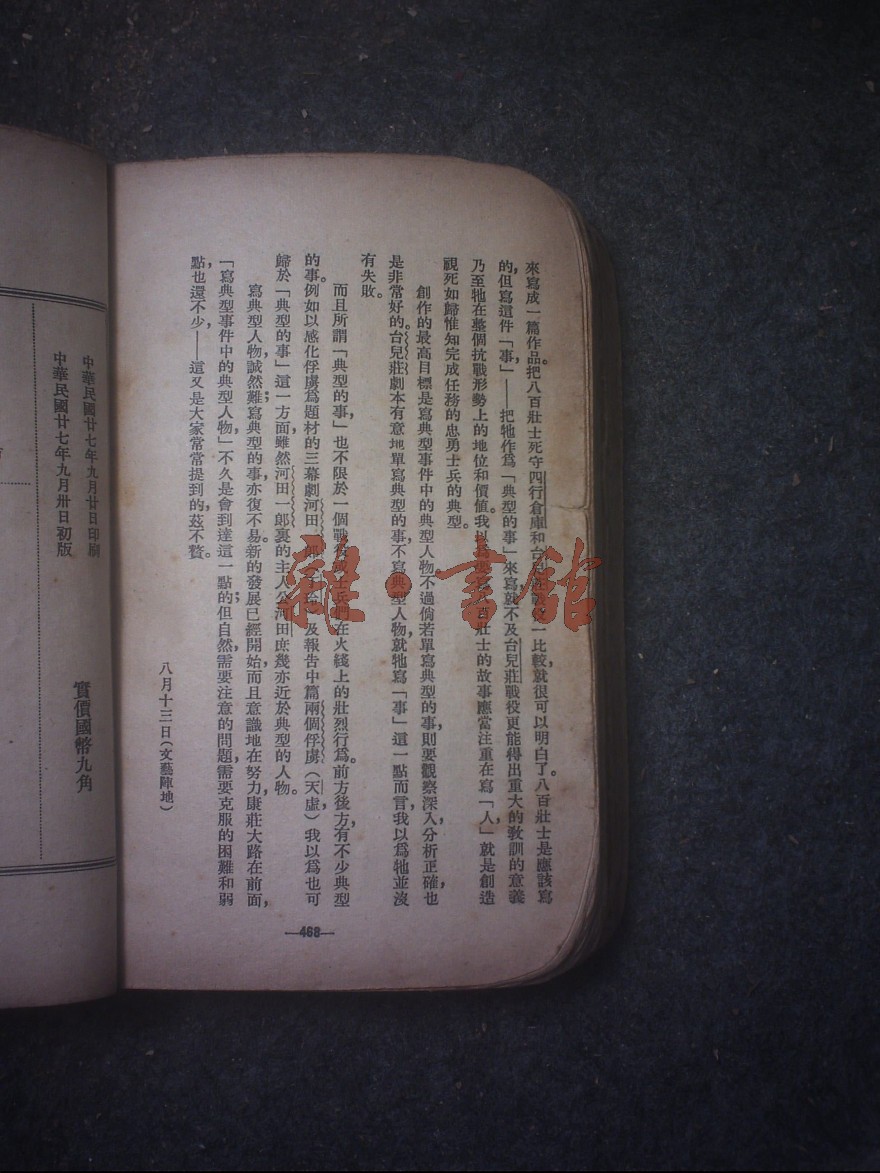 來寫成一篇作品。把八百壯士死守四行倉庫和台兒莊戰役一比較,就很可以明白了。八百壯士是應該寫
的,但寫這件「事」——把牠作爲「典型的事」來寫,就不及台兒莊戰役更能得出重大的敎訓的意義
乃至牠在整個抗戰形勢上的地位和價値。我以爲要寫八百壯士的故事應當注重在寫「人」,就是創造
視死如歸惟知完成任務的忠勇士兵的典型。
創作的最高目標是寫典型事件中的典型人物,不過倘若單寫典型的事,則要觀察深入,分析正確,也
是非常好的。台兒莊劇本有意地單寫典型的事,不寫典型人物,就牠寫「事」這一點而言,我以爲牠並沒
有失敗。
而且所謂「典型的事」,也不限於一個戰役或士兵們在火綫上的壯烈行爲。前方後方,有不少典型
的事。例如以感化俘虜爲題材的三幕劇河田一郎(丁玲)及報告中篇兩個俘虜(天虛),我以爲也可
歸於「典型的事」這一方面,雖然河田一郎裏的主人公河田庶幾亦近於典型的人物。
寫典型人物,誠然難;寫典型的事,亦復不易。新的發展已經開始,而且意識地在努力,康莊大路在前面,
「寫典型事件中的典型人物」不久是會到達這一點的;但自然,需要注意的問題,需要克服的困難和弱
點也還不少——這又是大家常常提到的,茲不贅。
八月十三日(文藝陣地)
—468—
中華民國廿七年九月廿日印刷
中華民國廿七年九月卅日初版
實價國幣九角
雜·書館